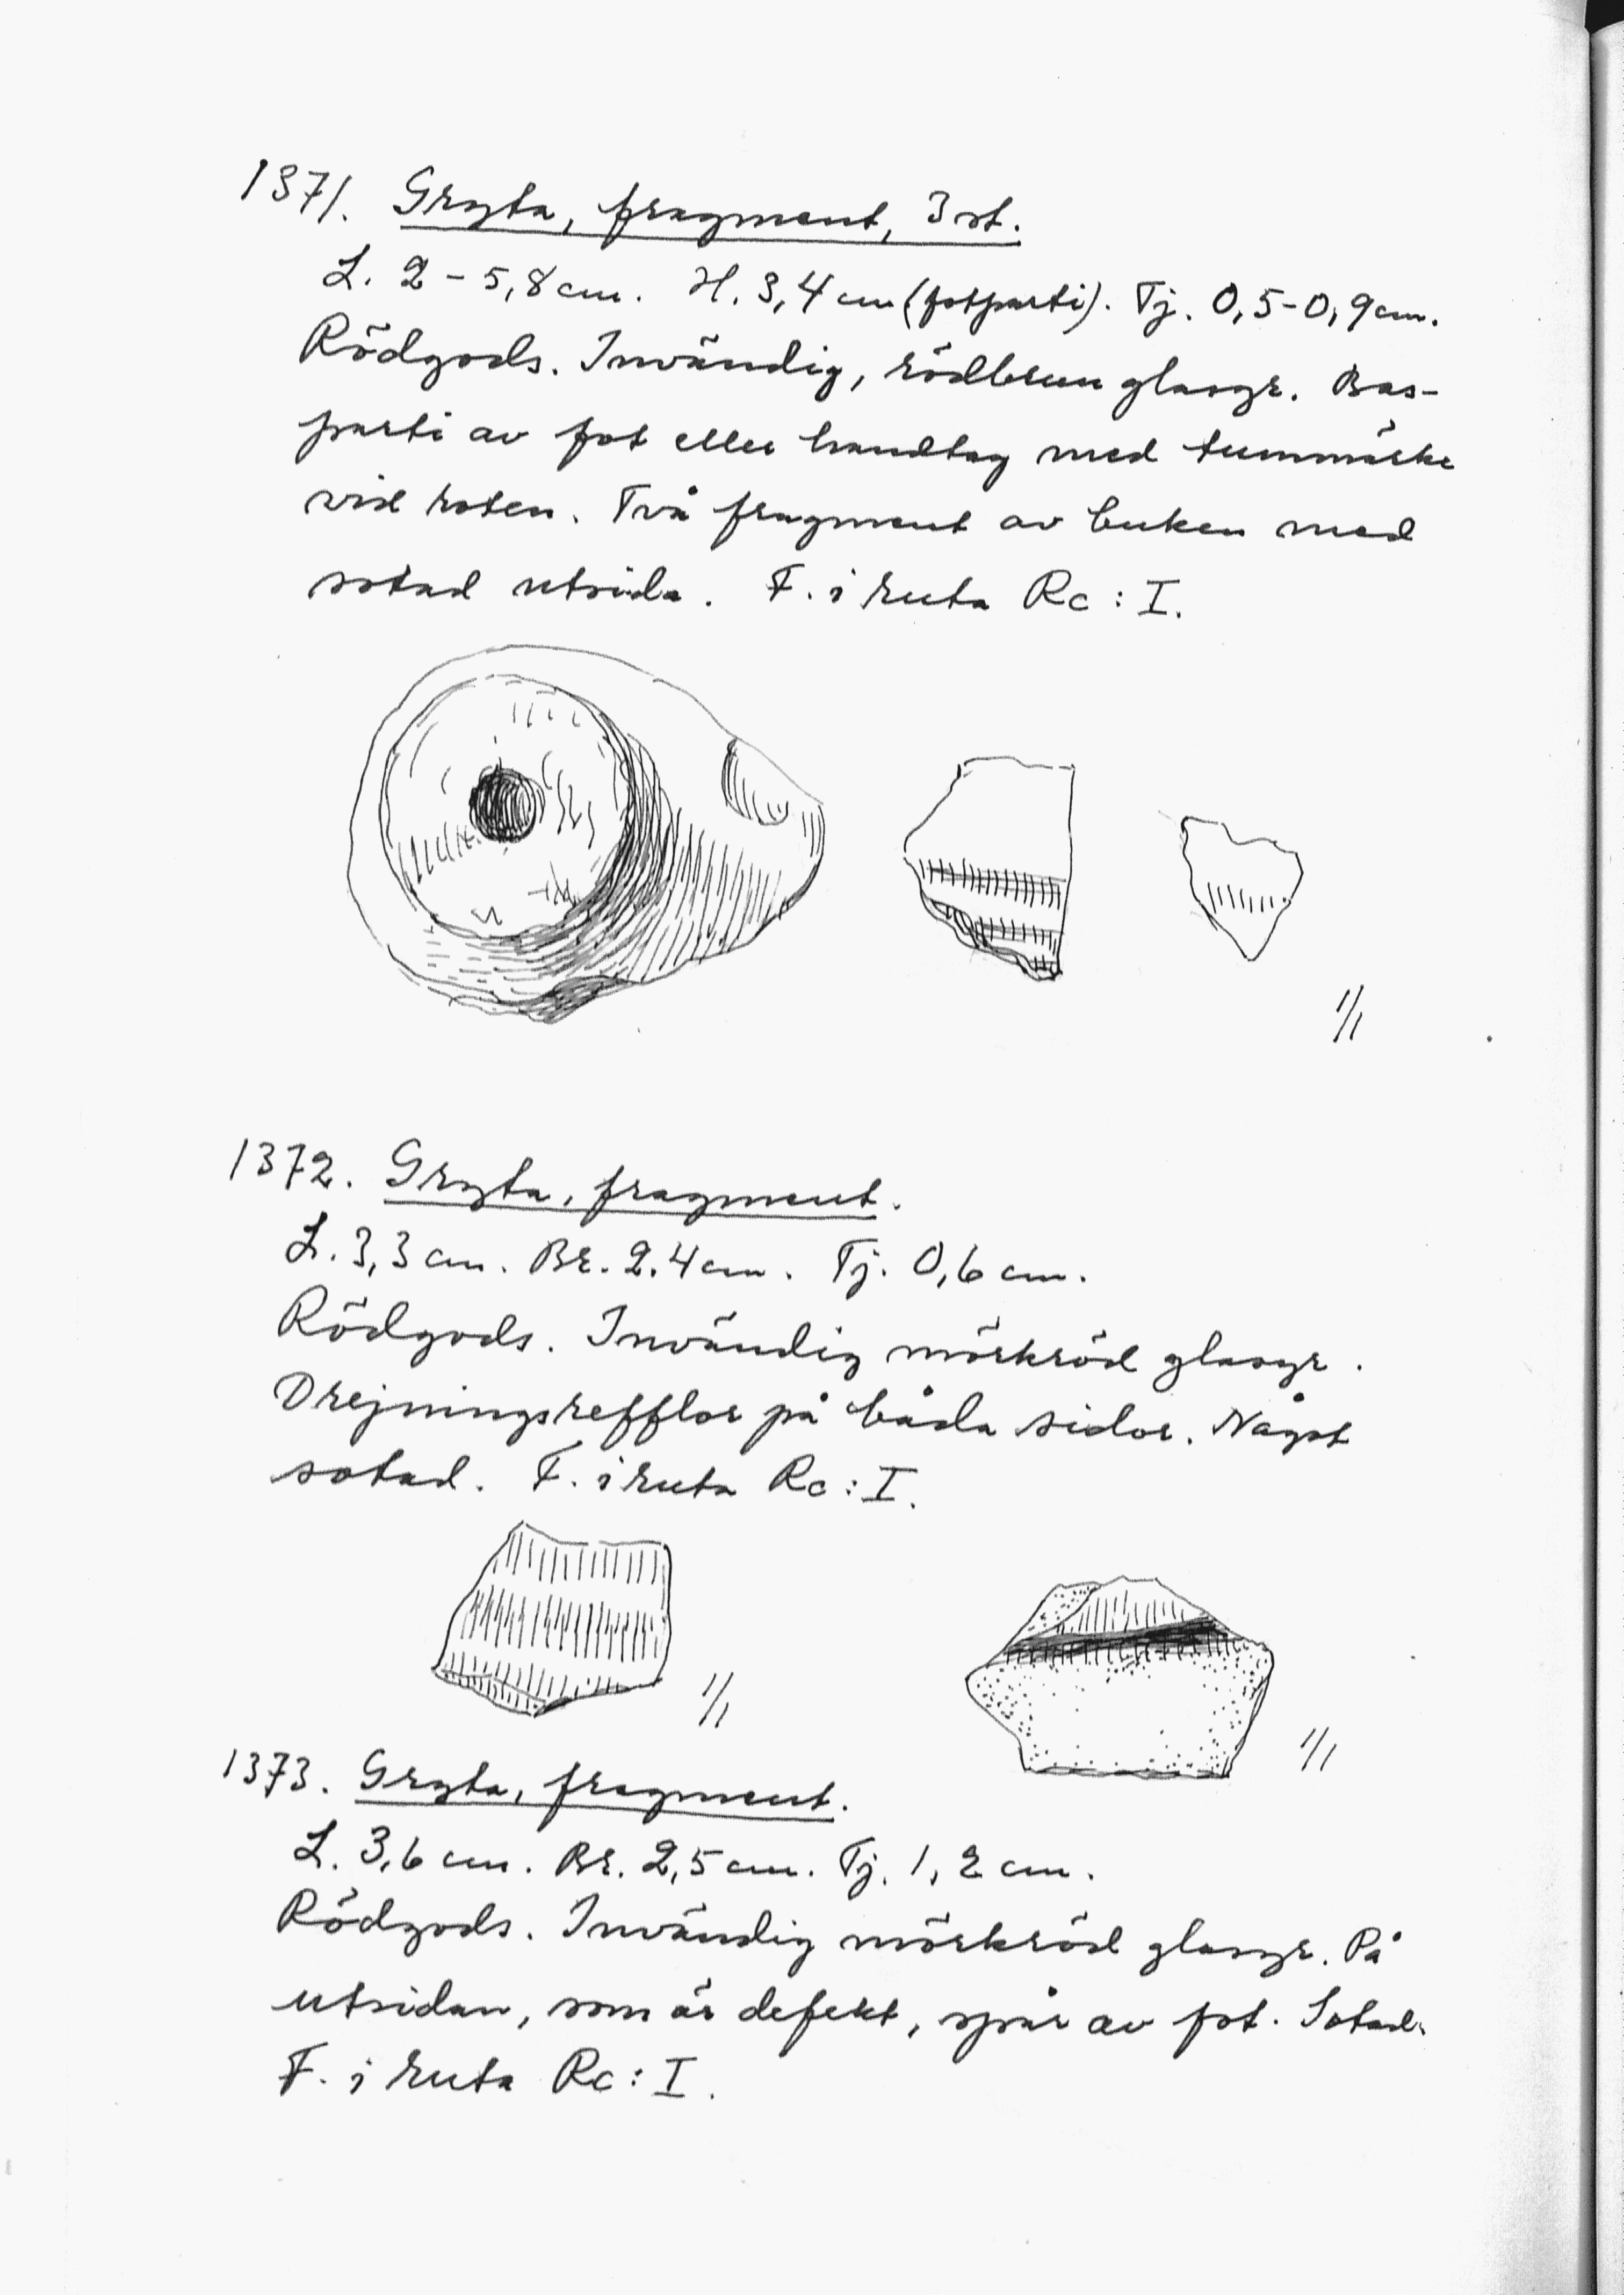 1371. Gryta, fragment, 3 st.
L. 2 - 5,8 cm. H. 3,4 cm (fotparti). Tj. 0,5-0,9 cm.
Rödgods. Invändig, rödbrun glasyr. Bas-
parti av fot eller handtag med tummärke
vid roten. Två fragment av buken med
sotad utsida. F. i ruta Rc : I.
1/1
1372. Gryta, fragment.
L. 3,3 cm. Br. 2.4 cm. Tj. 0,6 cm.
Rödgods. Invändig mörkröd glasyr.
Drejningsrefflor på båda sidor. Något
sotad. F. i ruta Rc : I.
1/1
1/1
1373. Gryta, fragment.
L. 3,6 cm. Br. 2,5 cm. Tj. 1,2 cm.
Rödgods. Invändig mörkröd glasyr. På
utsidan, som är defekt, spår av fot. Sotad.
F. i ruta Rc : I.